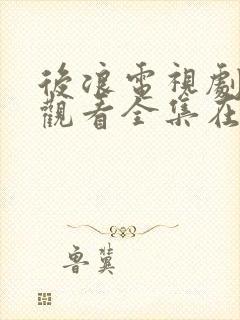 後浪電視劇
觀看全集在
魯冀